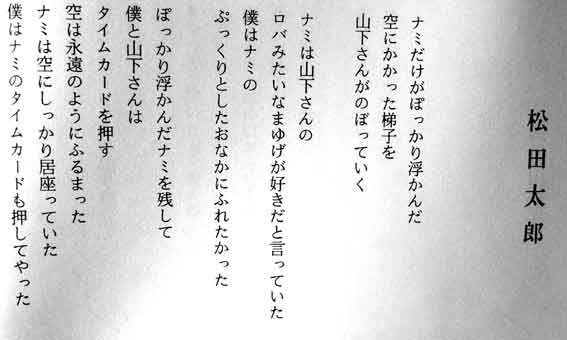 松田太郎
ナミだけがぽっかり浮かんだ
空にかかった梯子を
山下さんがのぼっていく
ナミは山下さんの
ロバみたいなまゆげが好きだと言っていた
僕はナミの
ぷっくりとしたおなかにふれたかった
ぽっかり浮かんだナミを残して
僕と山下さんは
タイムカードを押す
空は永遠のようにふるまった
ナミは空にしっかり居座っていた
僕はナミのタイムカードも押してやった